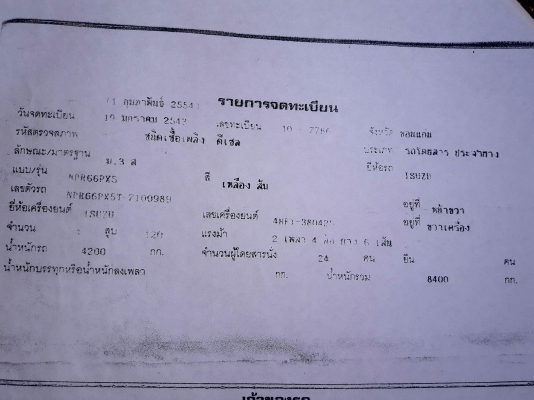 21 กุมภาพันธ์ 2554 รายการจดทะเบียน
วันจดทะเบียน 19 มกราคม 2543 เลขทะเบียน 10 - 7766 จังหวัด ขอนแก่น
รหัสตรวจสภาพ ชนิดเชื้อเพลิง ดีเซล ประเภท รถโดยสาร ประจำทาง
ลักษณะ/มาตรฐาน ม.3 ส ยี่ห้อรถ ISUZU
แบบ/รุ่น NPR66PX5 สี เหลือง ส้ม
เลขตัวรถ NPR66PX5T-7100989 อยู่ที่ หน้าขวา
ยี่ห้อเครื่องยนต์ ISUZU เลขเครื่องยนต์ อยู่ที่ ขวาเครื่อง
จำนวน สูบ 120 แรงม้า 2 เพลา 4 ล้อ ยาง 6 เส้น
น้ำหนักรถ 4200 กก. จำนวนผู้โดยสารนั่ง 24 คน ยืน คน
น้ำหนักบรรทุกหรือน้ำหนักลงเพลา กก. น้ำหนักรวม 8400 กก.
เจ้าของรถ